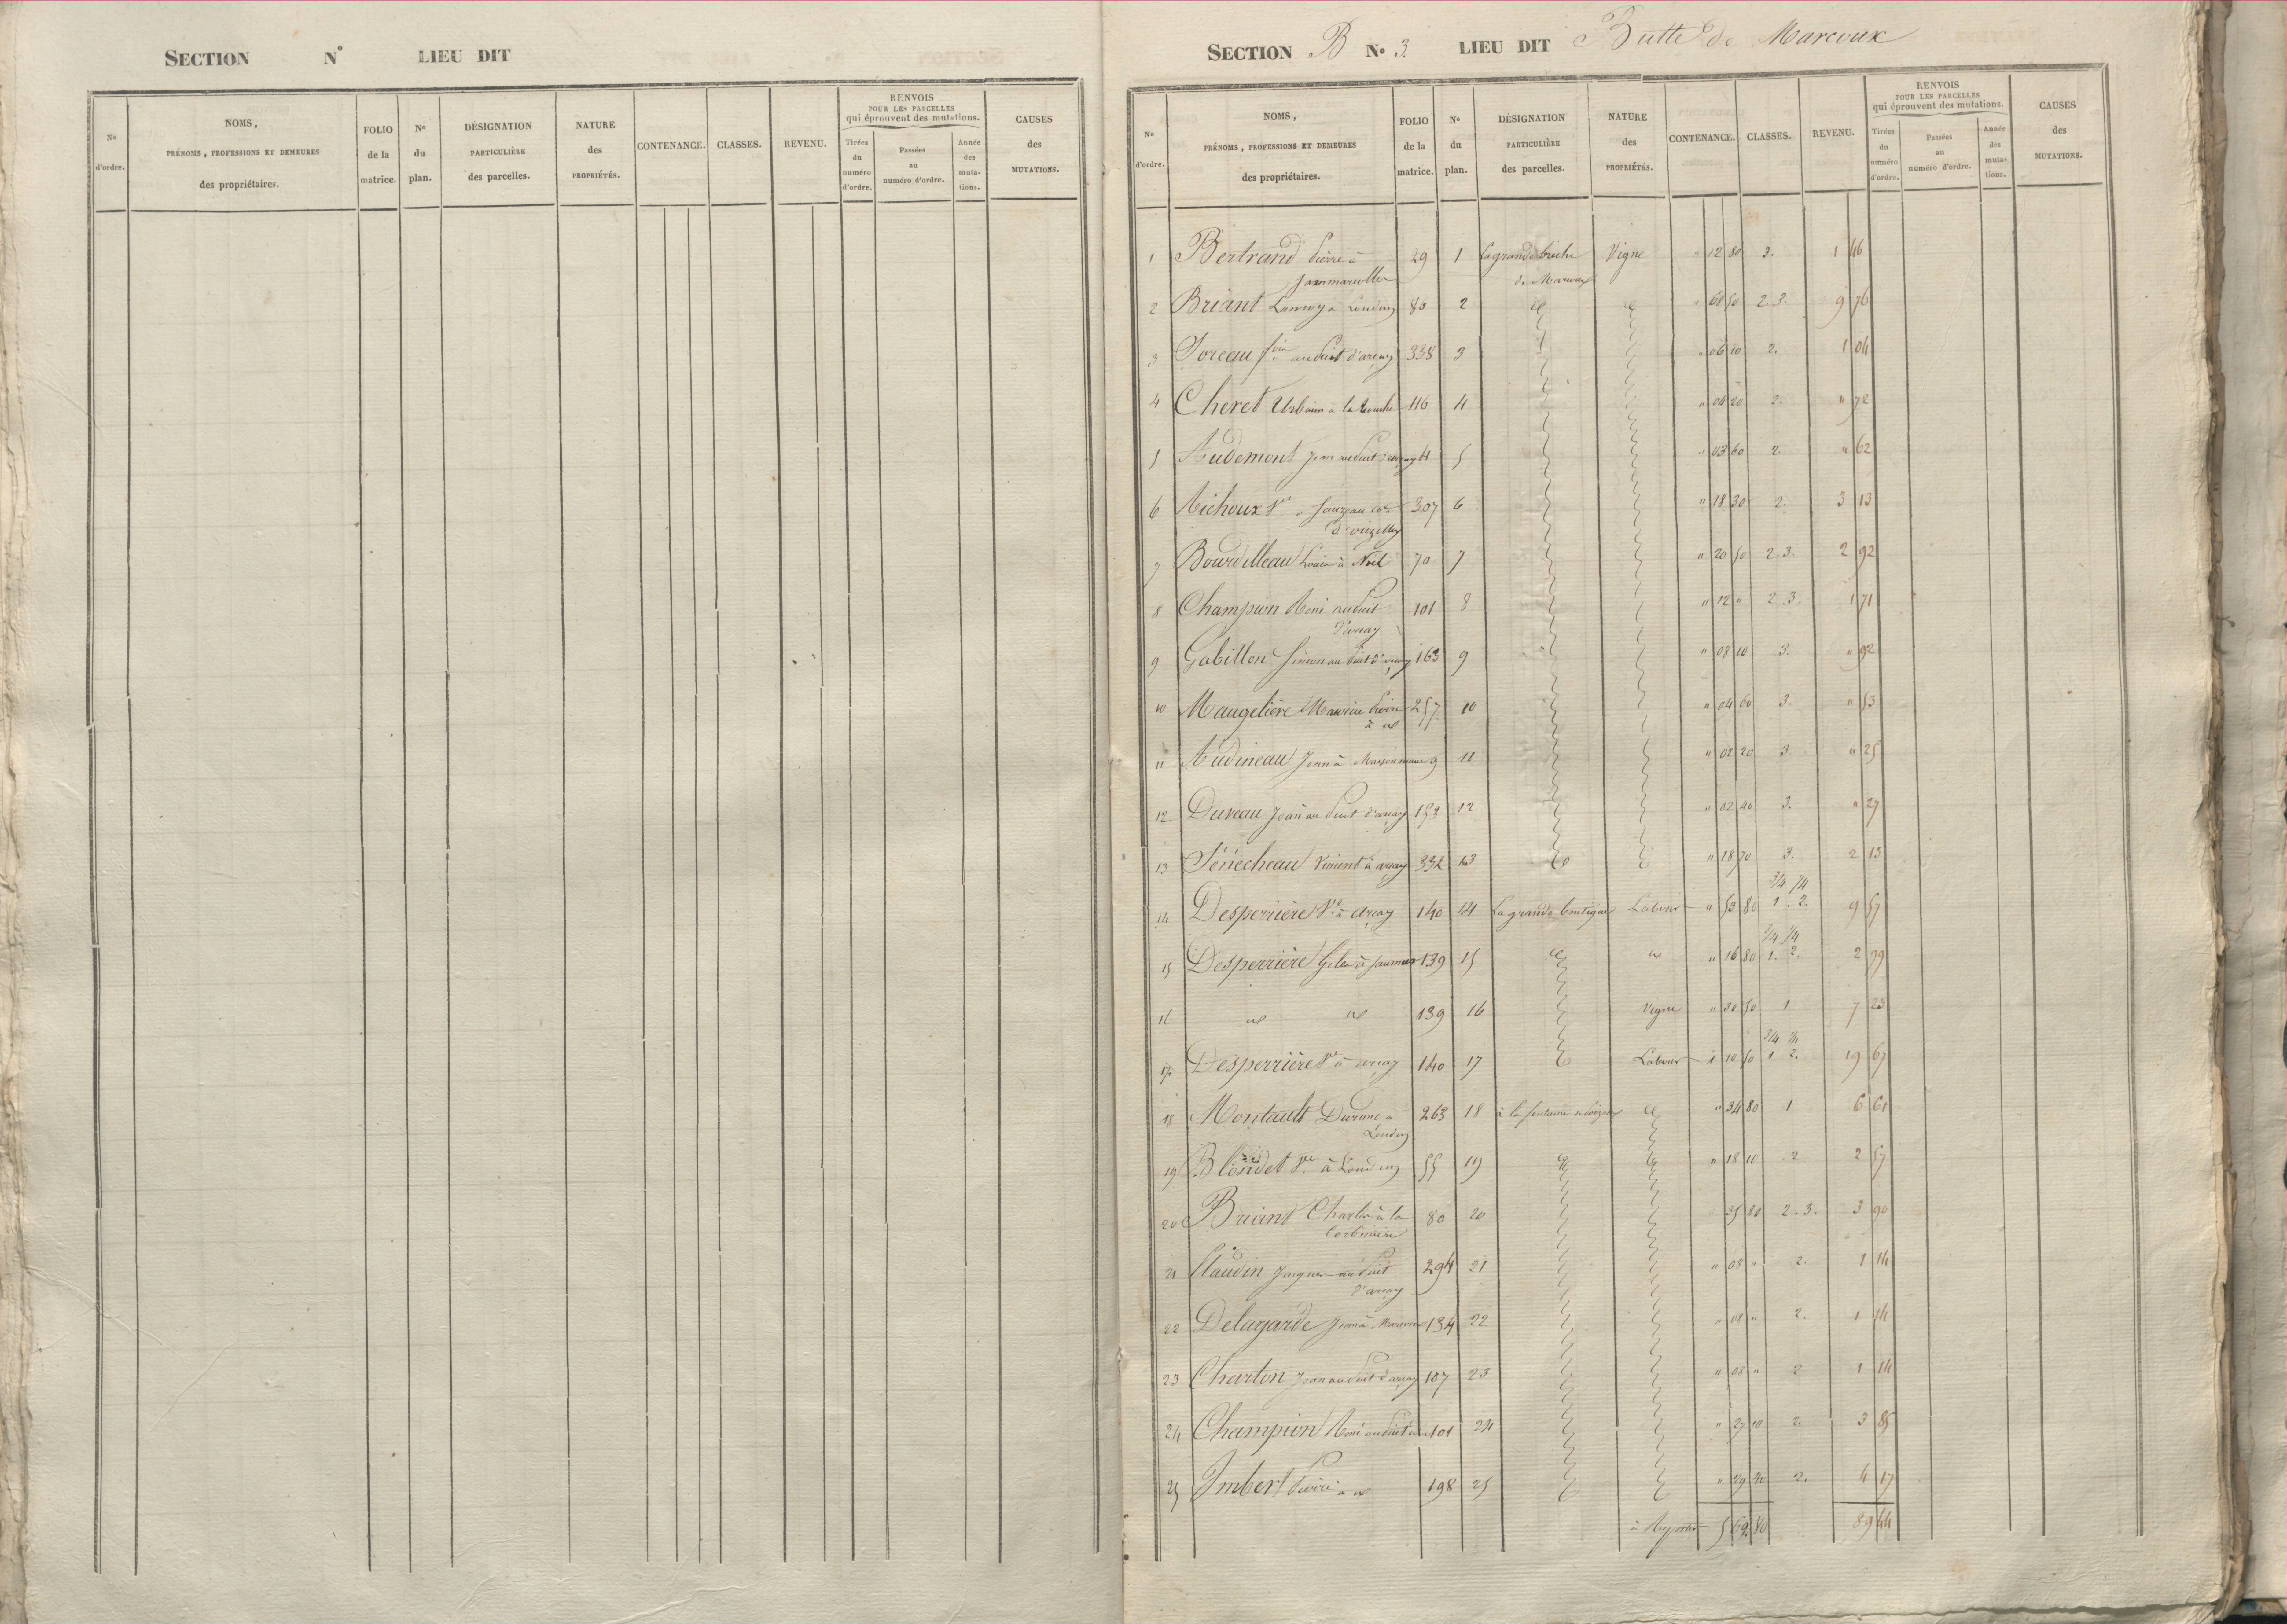 SECTION N° LIEU DIT
No d'ordre.
NOMS, PRÉNOMS, PROFESSIONS ET DEMEURES des propriétaires.
FOLIO de la matrice.
No du plan.
DÉSIGNATION PARTICULIÈRE des parcelles.
NATURE des PROPRIÉTÉS.
CONTENANCE.
CLASSES.
REVENU.
RENVOIS POUR LES PARCELLES qui éprouvent des mutations.
Tirées du numéro d'ordre.
Passées au numéro d'ordre.
Année des mutations.
CAUSES des MUTATIONS.
SECTION B No 3. LIEU DIT Butte de Marcoux
No d'ordre.
NOMS, PRÉNOMS, PROFESSIONS ET DEMEURES des propriétaires.
FOLIO de la matrice.
No du plan.
DÉSIGNATION PARTICULIÈRE des parcelles.
NATURE des PROPRIÉTÉS.
CONTENANCE.
CLASSES.
REVENU.
RENVOIS POUR LES PARCELLES qui éprouvent des mutations.
Tirées du numéro d'ordre.
Passées au numéro d'ordre.
Année des mutations.
CAUSES des MUTATIONS.
1 Bertrand Pierre à 29 1 La grande Vigne " 12 80 3. 1 46
de Marcoux
2 Briant à Loudun 80 2 " 68 50 2.3. 9 76
3 au Puit d'arçay 338 3 " 06 10 2. 1 04
4 Cheret Urbain à la 116 4 " 04 20 2. " 72
5 Audemont Jean au Puit d'arçay 5 " 03 60 2. " 62
6 Richoux Ve 307 6 " 18 30 2. 3 13
7 Bourdilleau Louis à Noël 70 7 " 20 50 2.3. 2 92
8 Champion René au Puit 101 8 " 12 " 2.3. 1 71
d'arçay
9 Gabillon Simon au Puit d'arçay 163 9 " 08 10 3. " 92
10 Maugelière Pierre 257 10 " 04 60 3. " 53
11 Audineau Jean à 9 11 " 02 20 3. " 25
12 Duveau Jean au Puit d'arçay 153 12 " 02 40 3. " 27
13 Sénécheau Vincent à arçay 332 13 " 18 70 3. 2 13
3/4 1/4
14 Desperrière Ve à Arçay 140 14 La grande Labour " 53 80 1. 2. 9 57
3/4 1/4
15 Desperrière à Saumur 139 15 " 16 80 1. 2. 2 99
16 139 16 Vigne " 30 50 1 7 23
3/4 1/4
17 Desperrière Ve à arçay 140 17 Labour 1 10 50 1 2. 19 67
18 Montault à 263 18 à la fontaine " 34 80 1 6 61
Loudun
19 Blondet Ve à Loudun 55 19 " 18 10 2 2 57
20 Briant Charles à la 80 20 35 80 2.3. 3 90
21 Plaudin Jacques au Puit 294 21 " 08 " 2. 1 14
d'arçay
22 Delagarde Jean à 134 22 " 08 " 2. 1 14
23 Charton Jean au Puit d'arçay 107 23 " 08 " 2 1 14
24 Champion René au Puit 101 24 " 27 10 2. 3 85
25 Imbert Pierre 198 25 " 29 40 2. 4 17
à Reporter 5 62 80 89 44